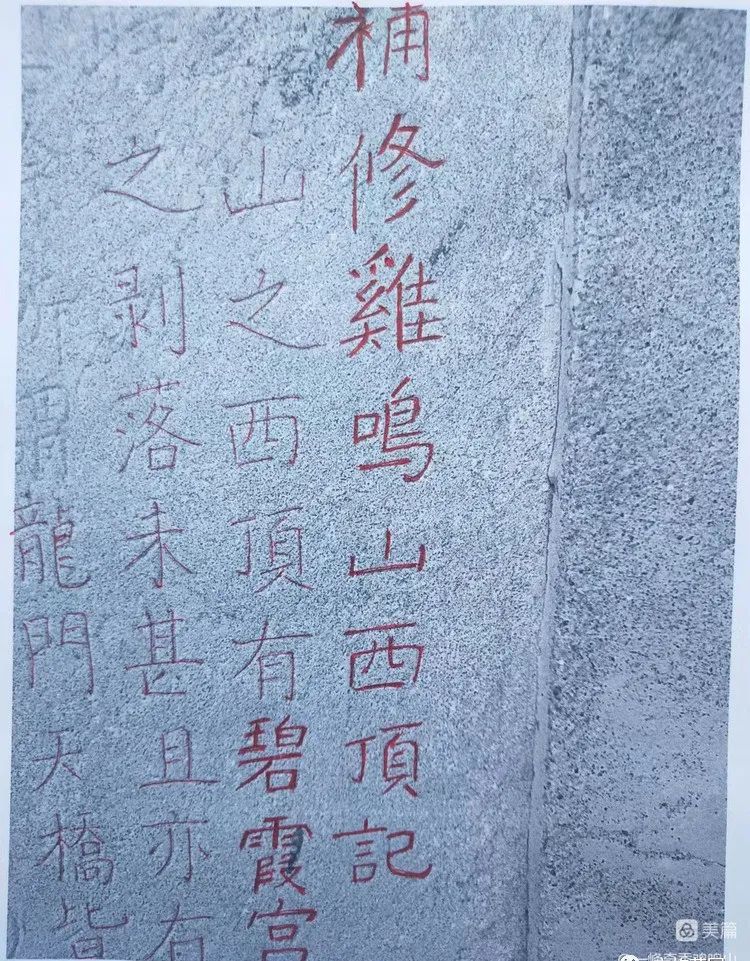 補修雞鳴山西頂記
山之西頂有碧霞宮
之剥落未甚且亦有
所謂龍門天橋皆
美篇